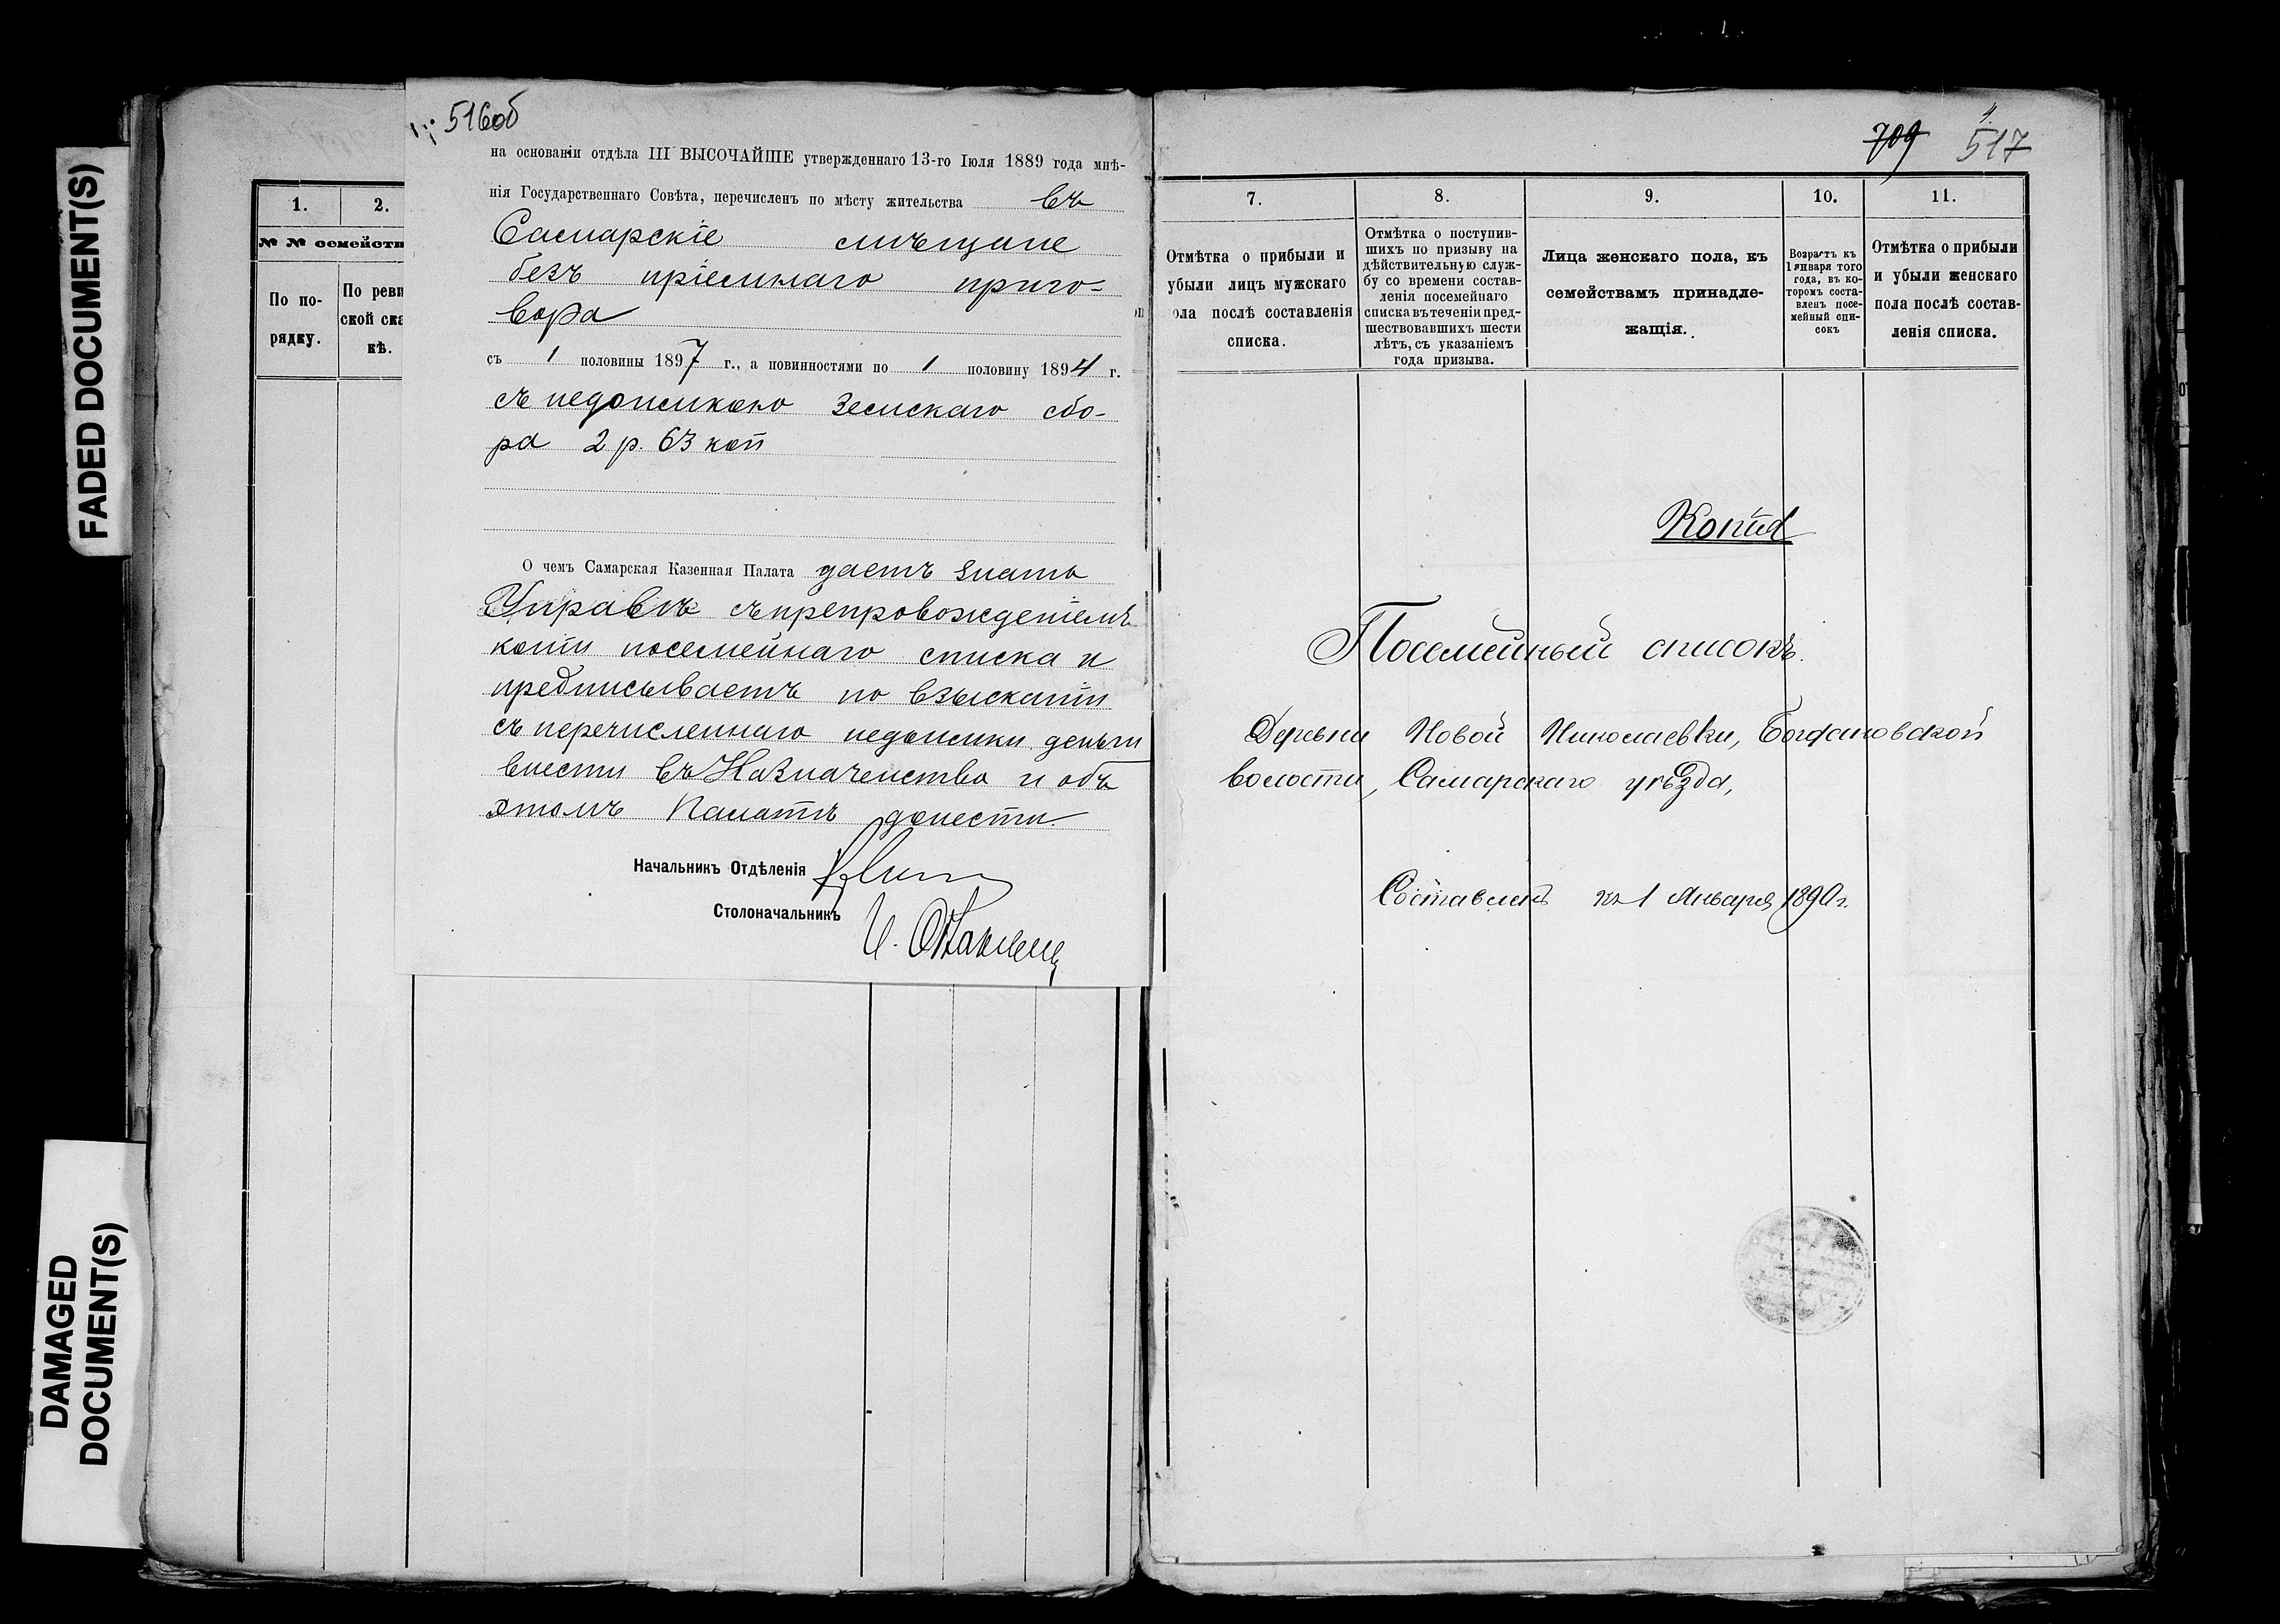 FADED DOCUMENT(S)
DAMAGED
DOCUMENT(S)
516об
1.
2.
№ № семейств
По по-
рядку.
По реви
ской ска
кѣ.
на основаніи отдѣла III ВЫСОЧАЙШЕ утвержденнаго 13-го Іюля 1889 года мнѣ-
нія Государственнаго Совѣта, перечисленъ по мѣсту жительства въ
Самарскіе мѣщане
безъ пріемнаго приго-
вора
съ 1 половины 1897 г., а повинностями по 1 половину 1894 г.
съ недоимкою Земскаго сбо-
ра 2 р. 63 коп
О чемъ Самарская Казенная Палата даетъ знать
Управѣ съ препровожденіемъ
копіи посемейнаго списка и
предписываетъ по взысканіи
съ перечисленнаго недоимки деньги
внести въ Казначейство и объ
этомъ Палатѣ донести
Начальникъ Отдѣленія
Столоначальникъ
709
517
7.
8.
9.
10.
11.
Отмѣтка о прибыли и
убыли лицъ мужскаго
ола послѣ составленія
списка.
Отмѣтка о поступив-
шихъ по призыву на
дѣйствительную служ-
бу со времени состав-
ленія посемейнаго
списка въ теченіи пред-
шествовавшихъ шести
лѣтъ, съ указаніемъ
года призыва.
Лица женскаго пола, къ
семействамъ принадле-
жащія.
Возрастъ къ
1 января того
года, въ ко-
торомъ соста-
вленъ посе-
мейный спи-
сокъ
Отмѣтка о прибыли
и убыли женскаго
пола послѣ состав-
ленія списка.
Копія
Посемейный списокъ.
Деревни Новой Николаевки, Богдановской
волости, Самарскаго уѣзда,
Составленъ къ 1 Января 1890 г.